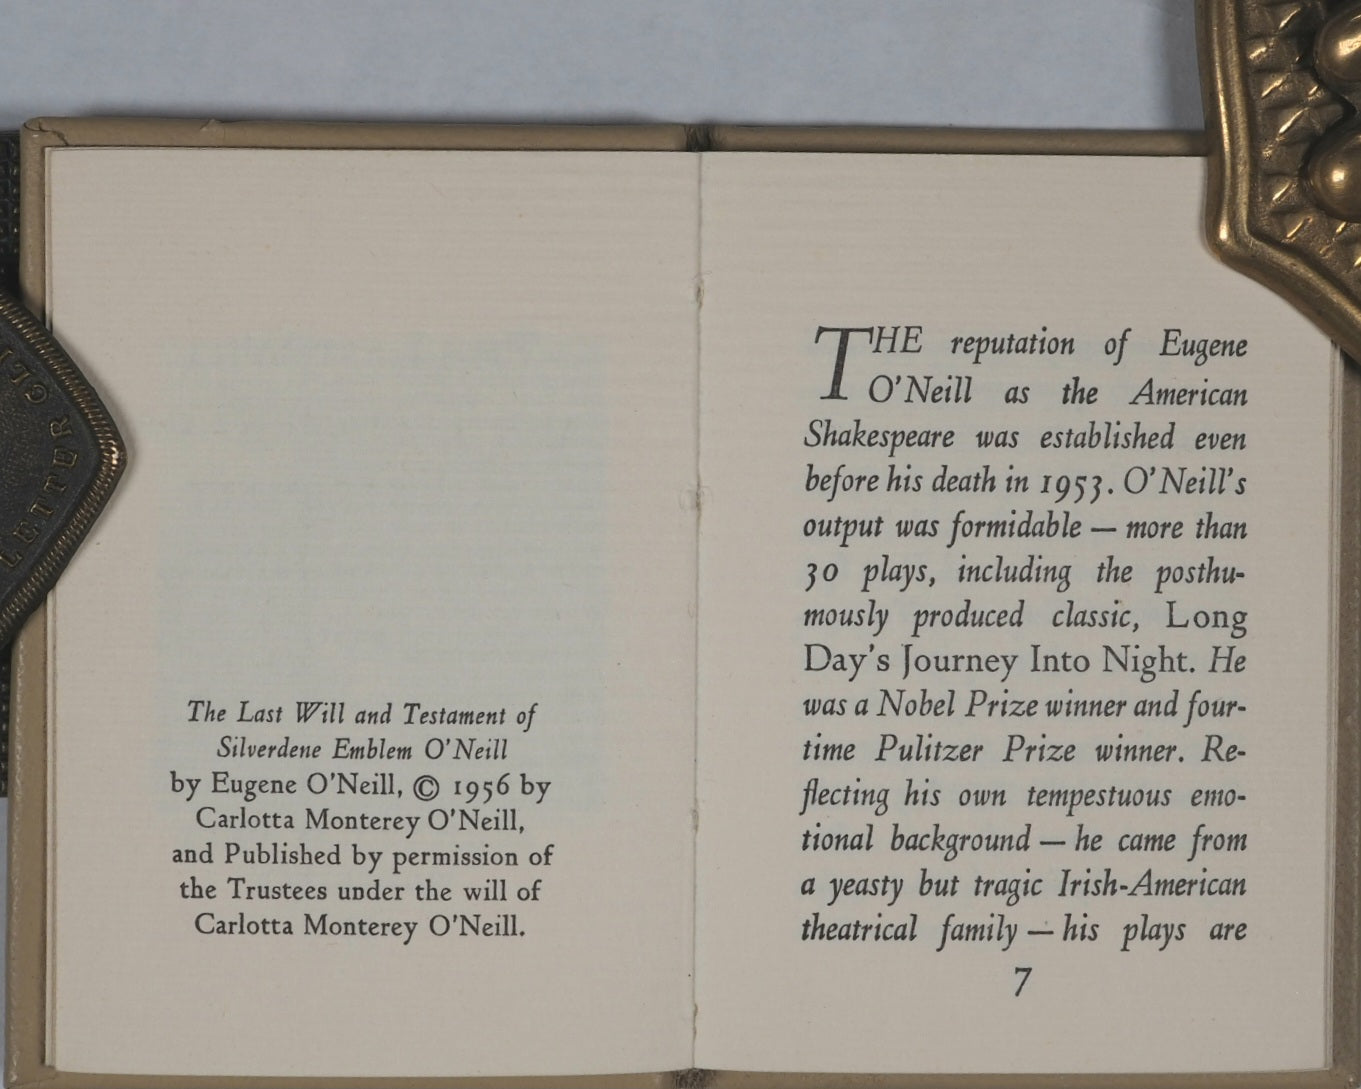 LETTER CLI
The Last Will and Testament of
Silverdene Emblem O'Neill
by Eugene O'Neill, © 1956 by
Carlotta Monterey O'Neill,
and Published by permission of
the Trustees under the will of
Carlotta Monterey O'Neill.
THE reputation of Eugene
O'Neill as the American
Shakespeare was established even
before his death in 1953. O'Neill's
output was formidable — more than
30 plays, including the posthu-
mously produced classic, Long
Day's Journey Into Night. He
was a Nobel Prize winner and four-
time Pulitzer Prize winner. Re-
flecting his own tempestuous emo-
tional background — he came from
a yeasty but tragic Irish-American
theatrical family — his plays are
7